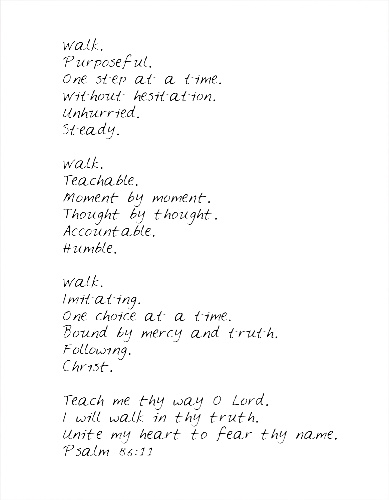 Walk.
Purposeful.
One step at a time.
Without hesitation.
Unhurried.
Steady.
Walk.
Teachable.
Moment by moment.
Thought by thought.
Accountable.
Humble.
Walk.
Imitating.
One choice at a time.
Bound by mercy and truth.
Following.
Christ.
Teach me thy way O Lord.
I will walk in thy truth.
Unite my heart to fear thy name.
Psalm 86:11